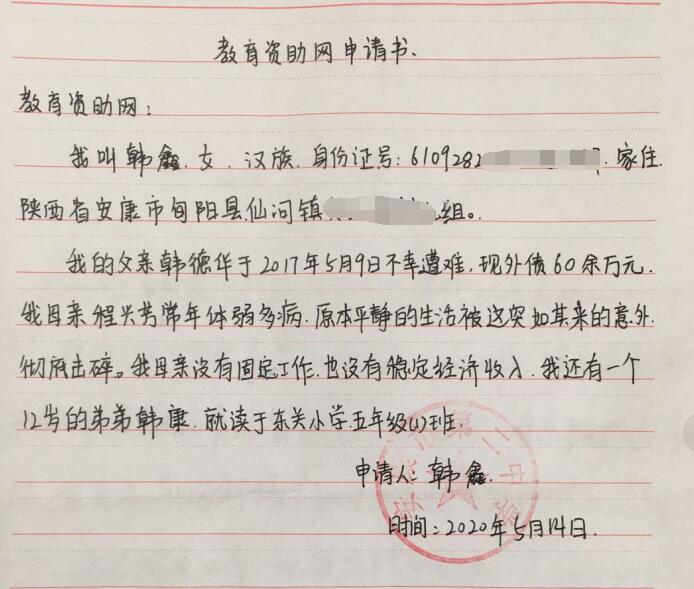 教育资助网申请书.
教育资助网：
我叫韩鑫.女.汉族.身份证号：6109282 家住.
陕西省安康市旬阳县仙问镇 组。
我的父亲韩德华于2017年5月9日不幸遭难,现外债60余万元.
我母亲程兴芳常年体弱多病.原本平静的生活被这突如其来的意外.
彻底击碎。我母亲没有固定工作.也没有稳定经济收入.我还有一个
12岁的弟弟韩康.就读于东关小学五年级(1)班.
申请人：韩鑫.
时间：2020年5月14日.
安康市第二中学